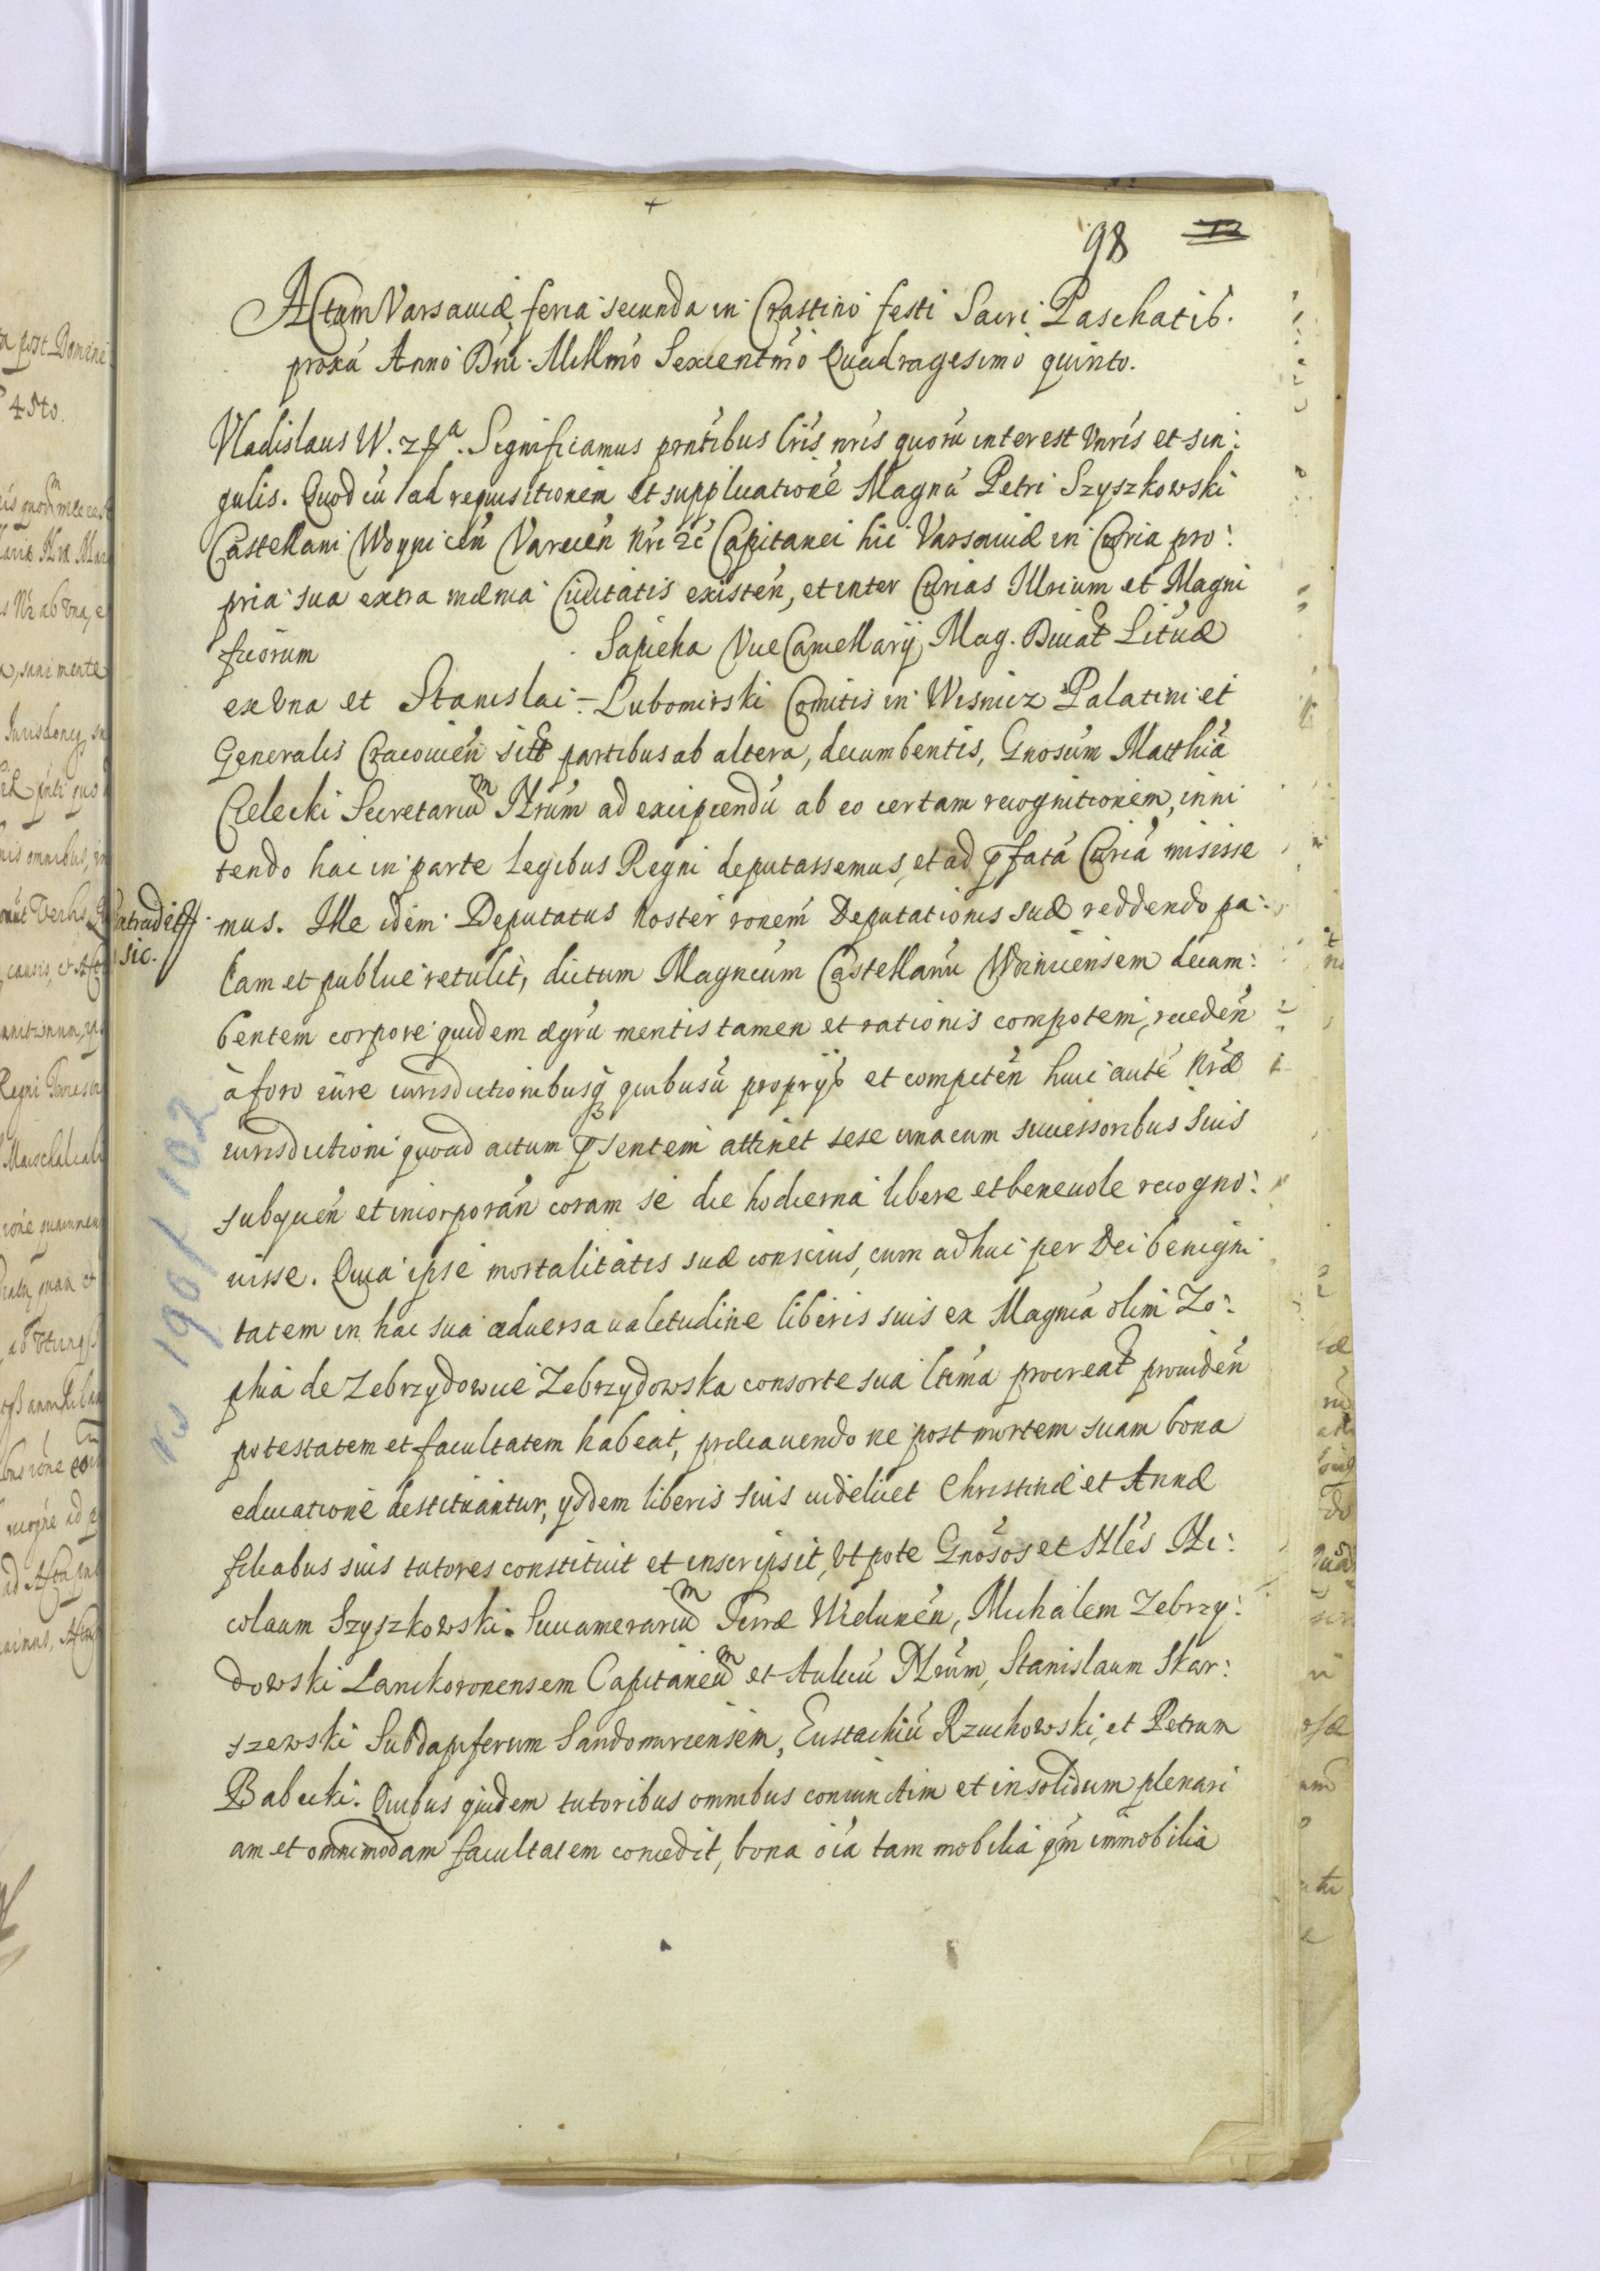 98
Actum Varsaviæ feria secunda in Crastino festi Sacri Paschatis
proxá Anno Dni Millmo Sexcentmo Quadragesimo quinto.
Vladislaus IV. z &a. Significamus pntibus lris nris quorú interest Vnris et sin:
gulis. Quod cú ad requisitionem et supplicationé Magnci Petri Szyszkowski
Castellani Woynicén Varecén Nri zé Capitanei hic Varsaviæ in Curia pro:
pria sua extra mænia Civitatis existén, et inter Curias Illrium et Magni
ficorum Sapieha Vice Cancellarij Mag. Ducat Lituæ
ex Vna et Stanislai - Lubomirski Comitis in Wisnicz Palatini et
Generalis Cracovién sitt partibus ab altera, decumbentis, Gnosum Matthiá
Cielecki Secretarium Nrúm ad excipiendú ab eo certam recognitionem, inni
tendo hac in parte Legibus Regni deputassemus, et ad pfatá Curiá misisse
mus. Ille idem Deputatus Noster ronem Deputationis suæ reddendo pa:
lam et publice retulit, dictum Magncúm Castellanú Woiniciensem decum:
bentem corpore quidem ægrú mentis tamen et rationis compotem, recedén
à foro iure iurisdictionibusq quibusú proprijs et competén huic auté Nræ
iurisdictioni quoad actum psentem attinet sese una cum successoribus suis
subijcién et incorporán coram se die hodierna libere et benevole recogno:
visse. Quia ipse mortalitatis suæ conscius, cum adhuc per Dei benigni
tatem in hac sua adversa valetudine liberis suis ex Magnca olim Zo:
phia de Zebrzydowice Zebrzydowska consorte sua ltima procreat providén
potestatem et facultatem habeat, præcavendo ne post mortem suam bona
educatione destituantur, ijsdem liberis suis videlicet Christinæ et Annæ
filiabus suis tutores constituit et inscripsit, Vt pote Gnosos et Nles Ni:
colaum Szyszkowski Succamerarium Terræ Wielunén, Michalem Zebrzy:
dowski Lanckoronensem Capitaneum et Aulicú Nrúm, Stanislaum Skar:
szewski Subdapiferum Sandomiriensem, Eustachiú Rzuchowski, et Petrum
Babecki. Quibus quidem tutoribus omnibus coniunctim et in solidum plenari
am et omnimodam facultatem concedit, bona oia tam mobilia qm immobilia
sic.
190/102